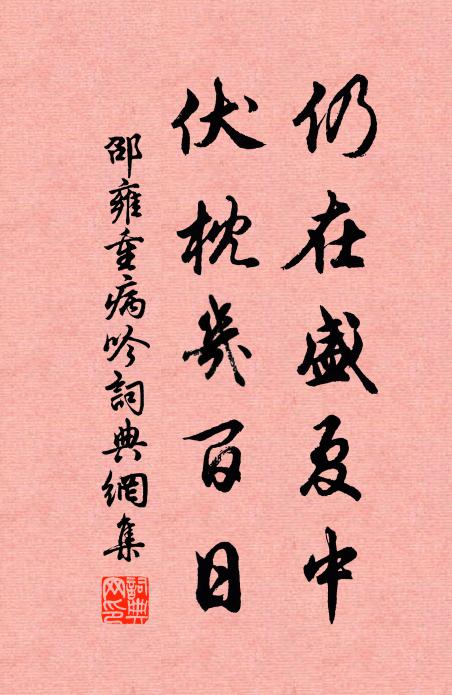 仍在盛夏中
伏枕幾百日
邵雍重病吟詞典網集
詞典網印